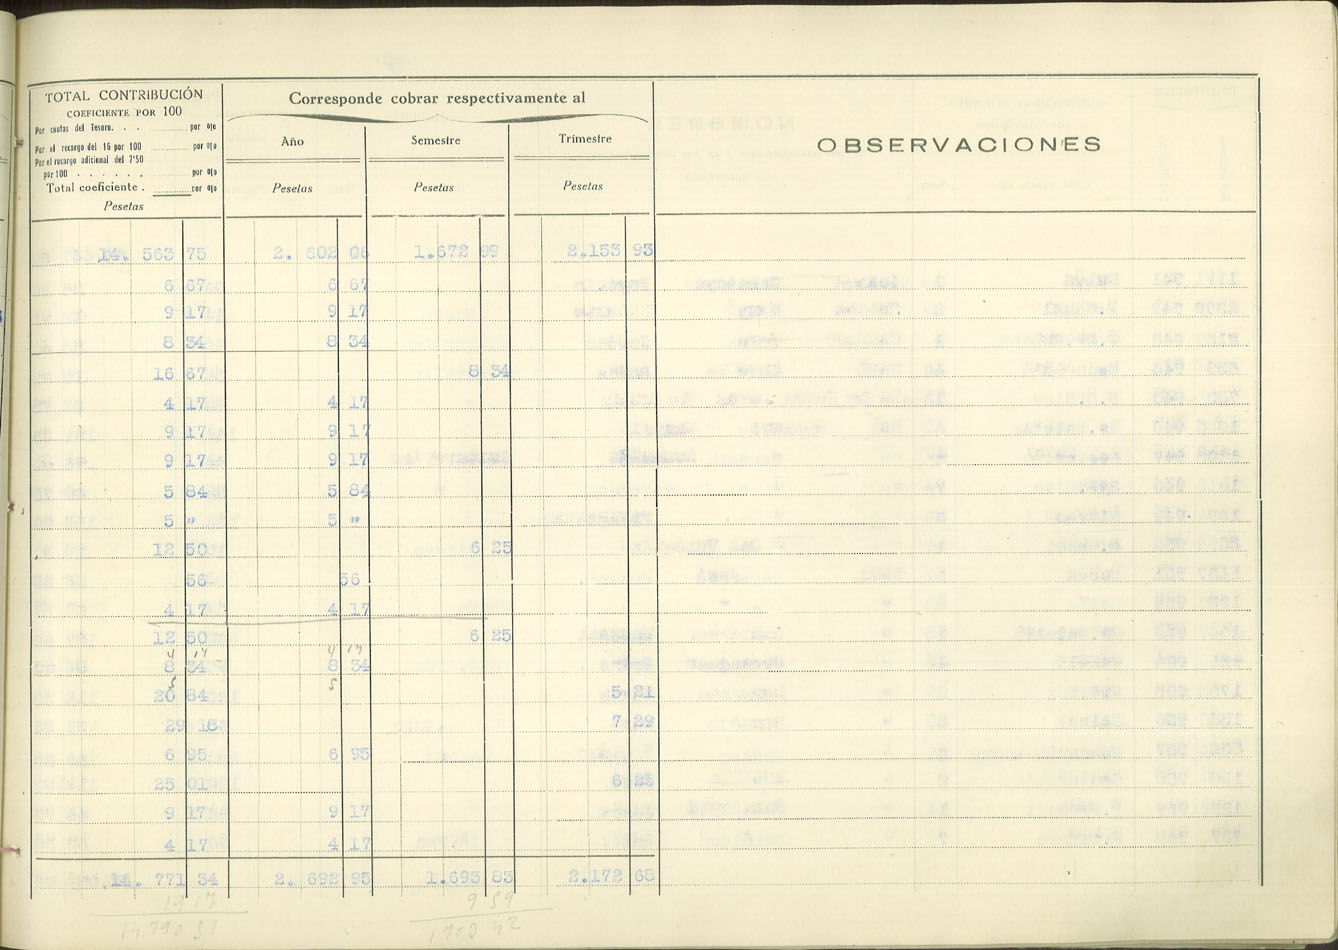 TOTAL CONTRIBUCIÓN
COEFICIENTE POR 100
Por cuotas del Tesoro. . . por 0|0
Por el recargo del 16 por 100 por 0|0
Por el recargo adicional del 7'50
por 100 . . . . . . por 0|0
Total coeficiente . por 0|0
Pesetas
Corresponde cobrar respectivamente al
Año Semestre Trimestre
Pesetas Pesetas Pesetas
OBSERVACIONES
14. 563 75 2. 602 06 1.672 99 2.153 93
6 67 6 67
9 17 9 17
8 34 8 34
16 67 8 34
4 17 4 17
9 17 9 17
9 17 9 17
5 84 5 84
5 " 5 "
12 50 6 25
56 56
4 17 4 17
12 50 6 25
4 17 4 17
8 34 8 34
5 5
20 84 5 21
29 18 7 29
6 95 6 95
25 01 6 25
9 17 9 17
4 17 4 17
14. 771 34 2. 692 95 1.693 83 2.172 68
19 17 9 59
14790 51 1703 42